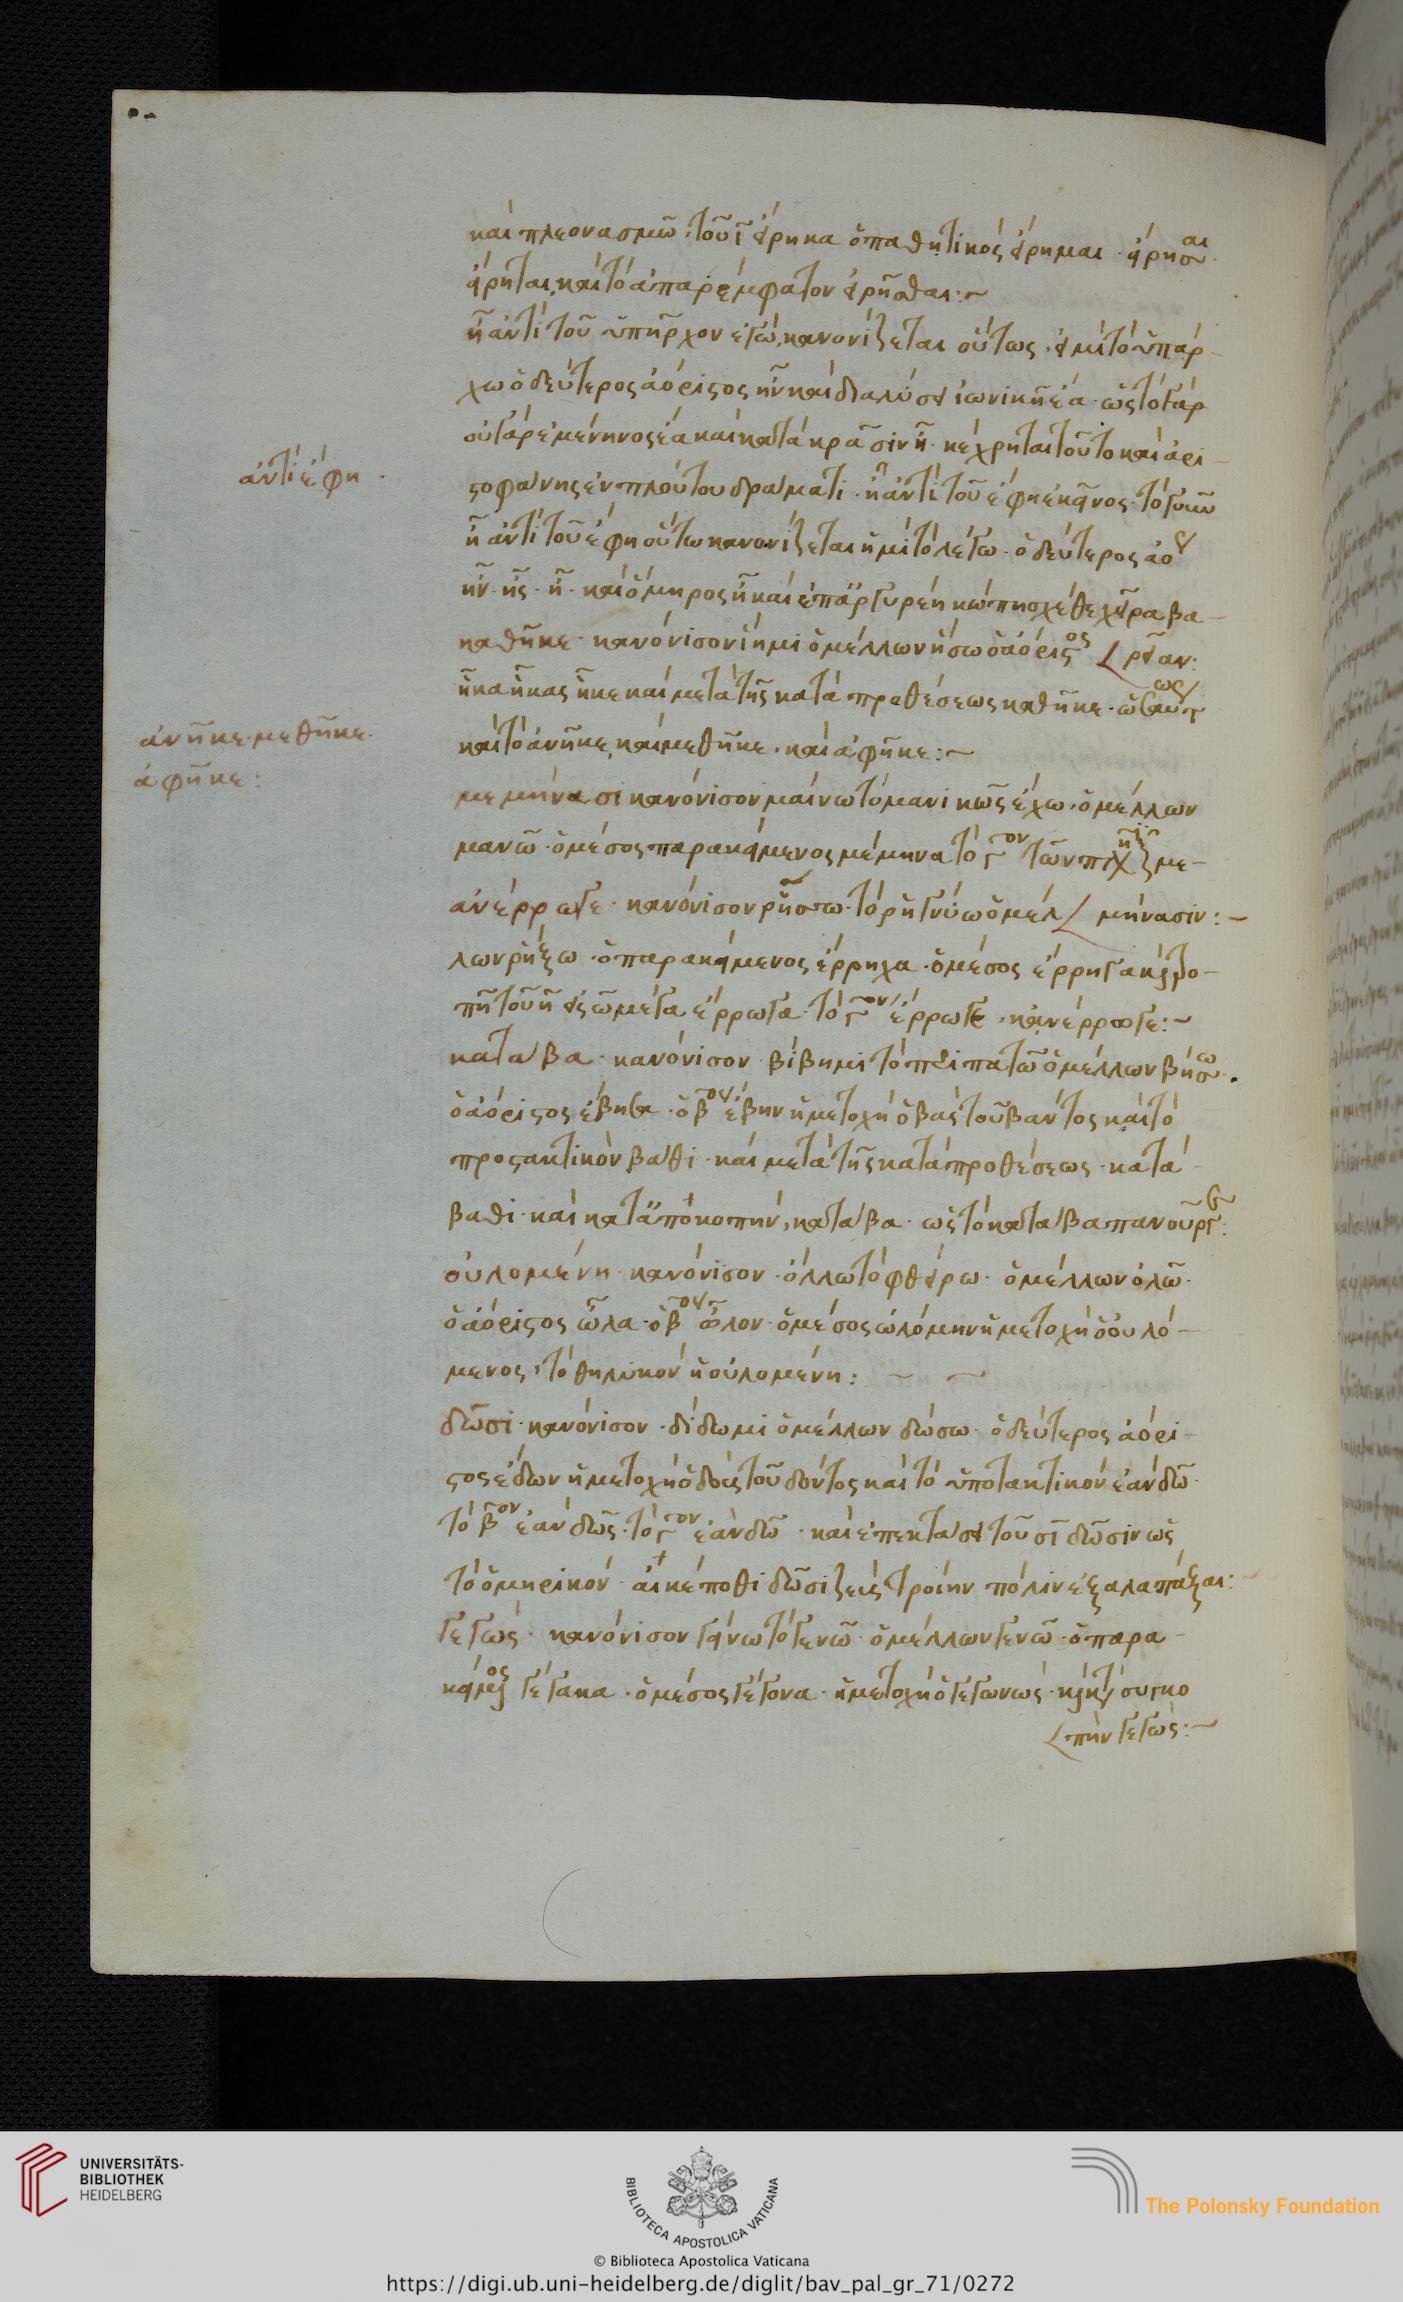 καὶ πλεονασμῶ τοῦ ϊ εἴρηκα ὁ παθητικὸς εἴρημαι · εἴρησαι ·
εἴρηται, καὶ τὸ ἀπαρέμφατον εἰρῆσθαι :~
ἦ ἀντὶ τοῦ ὑπῆρχον ἐγώ, κανονίζεται οὕτως · εἰμὶ τὸ ὑπάρ-
χω ὁ δεύτερος ἀόριστος ἦν καὶ διαλύσει ἰωνικῆ ἔα · ὡς τὸ γὰρ
οὐ γὰρ ἐμενηνος ἔα καὶ κατὰ κρᾶσιν ἦ · κέχρηται τοῦτο καὶ ἀρι-
στοφάνης ἐν πλούτου δράματι · ἦ ἀντὶ τοῦ ἔφη ἐκεῖνος · τὸ
ἀντὶ ἔφη ·
ἦ ἀντὶ τοῦ ἔφη οὕτω κανονίζεται ἠμὶ τὸ λέγω · ὁ δεύτερος ἀο
ἦν · ἦς · ἦ · καὶ ὅμηρος ἦ καὶ ἐπ' ἀργυρέη κώπη σχέθε χεῖρα βα-
καθῆκε · κανόνισον ἵημι ὁ μέλλων ἥσω ὁ ἀόριστος ρεῖαν :
ἧκα ἧκας ἧκε καὶ μετὰ τῆς κατὰ προθέσεως καθῆκε · ὡσαύτως
καὶ τὸ ἀνῆκε, καὶ μεθῆκε · καὶ ἀφῆκε :~
ἀνῆκε · μεθῆκε ·
ἀφῆκε :
μεμήνασι κανόνισον μαίνω τὸ μανικῶς ἔχω · ὁ μέλλων
μανῶ · ὁ μέσος παρακείμενος μέμηνα τὸ γον τῶν με-
ἀνέρρωγε · κανόνισον ρήσσω · τὸ ρηγνύω ὁ μέλ μήνασιν :~
λων ρήξω · ὁ παρακείμενος ἔρρηχα · ὁ μέσος ἔρρηγα καὶ τρο-
πῆ τοῦ η εἰς ω μέγα ἔρρωγα · τὸ γον ἔρρωγε · κἀνέρρωγε :~
κατάβα · κανόνισον βίβημι τὸ περιπατῶ ὁ μέλλων βήσω ·
ὁ ἀόριστος ἔβησα · ὁ βος ἔβην ἡ μετοχὴ ὁ βὰς τοῦ βάντος καὶ τὸ
προστακτικὸν βάθι · καὶ μετὰ τῆς κατὰ προθέσεως · κατά-
βαθι · καὶ κατὰ ἀποκοπήν, κατάβα · ὡς τὸ κατάβα πανοῦργε :
οὐλομένη · κανόνισον · ὄλλω τὸ φθείρω · ὁ μέλλων ὀλῶ ·
ὁ ἀόριστος ὦλα · ὁ βος ὦλον · ὁ μέσος ὠλόμην ἡ μετοχὴ ὁ οὐλό-
μενος · τὸ θηλυκὸν ἡ οὐλομένη : ~ ~
δῶσι · κανόνισον · δίδωμι ὁ μέλλων δώσω · ὁ δεύτερος ἀόρι-
στος ἔδων ἡ μετοχὴ ὁ δοὺς τοῦ δόντος καὶ τὸ ὑποτακτικὸν ἐὰν δῶ ·
τὸ βον ἐὰν δῶς · τὸ γον ἐὰν δῶ · καὶ ἐπεκτάσει τοῦ σι δῶσιν ὡς
τὸ ὁμηρικὸν · αἴ κέ ποθι δῶσι ζεὺς τροίην πόλιν ἐξαλαπάξαι :~
γεγὼς · κανόνισον γείνω τὸ γενῶ · ὁ μέλλων γενῶ · ὁ παρα-
κείμενος γέγακα · ὁ μέσος γέγονα · ἡ μετοχὴ ὁ γεγωνὼς · καὶ κατὰ συγκο
πὴν γεγώς :~
UNIVERSITÄTS-
BIBLIOTHEK
HEIDELBERG
BIBLIOTECA APOSTOLICA VATICANA
The Polonsky Foundation
© Biblioteca Apostolica Vaticana
https://digi.ub.uni-heidelberg.de/diglit/bav_pal_gr_71/0272